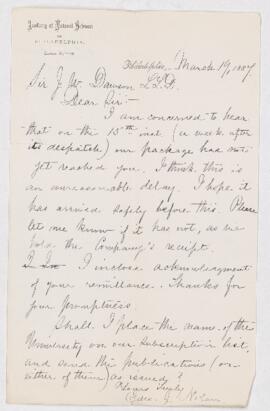 Academy of Natural Sciences
OF
PHILADELPHIA
Philadelphia, March 19, 1887
Sir J. W. Dawson LL.D.
Dear Sir:-
I am concerned to hear
that on the 15th inst (a week after
its despatch) our package had not
yet reached you. I think this is
an unreasonable delay. I hope it
has arrived safely before this. Please
let me know if it has not, as we
hold the Company's receipt.
I inclose acknowledgment
of your remittance. Thanks for
your promptness.
Shall I place the name of the
University on our Subscription list,
and send the publications (or
either of them) as issued?
Yours truly
Edw. J. Nolan